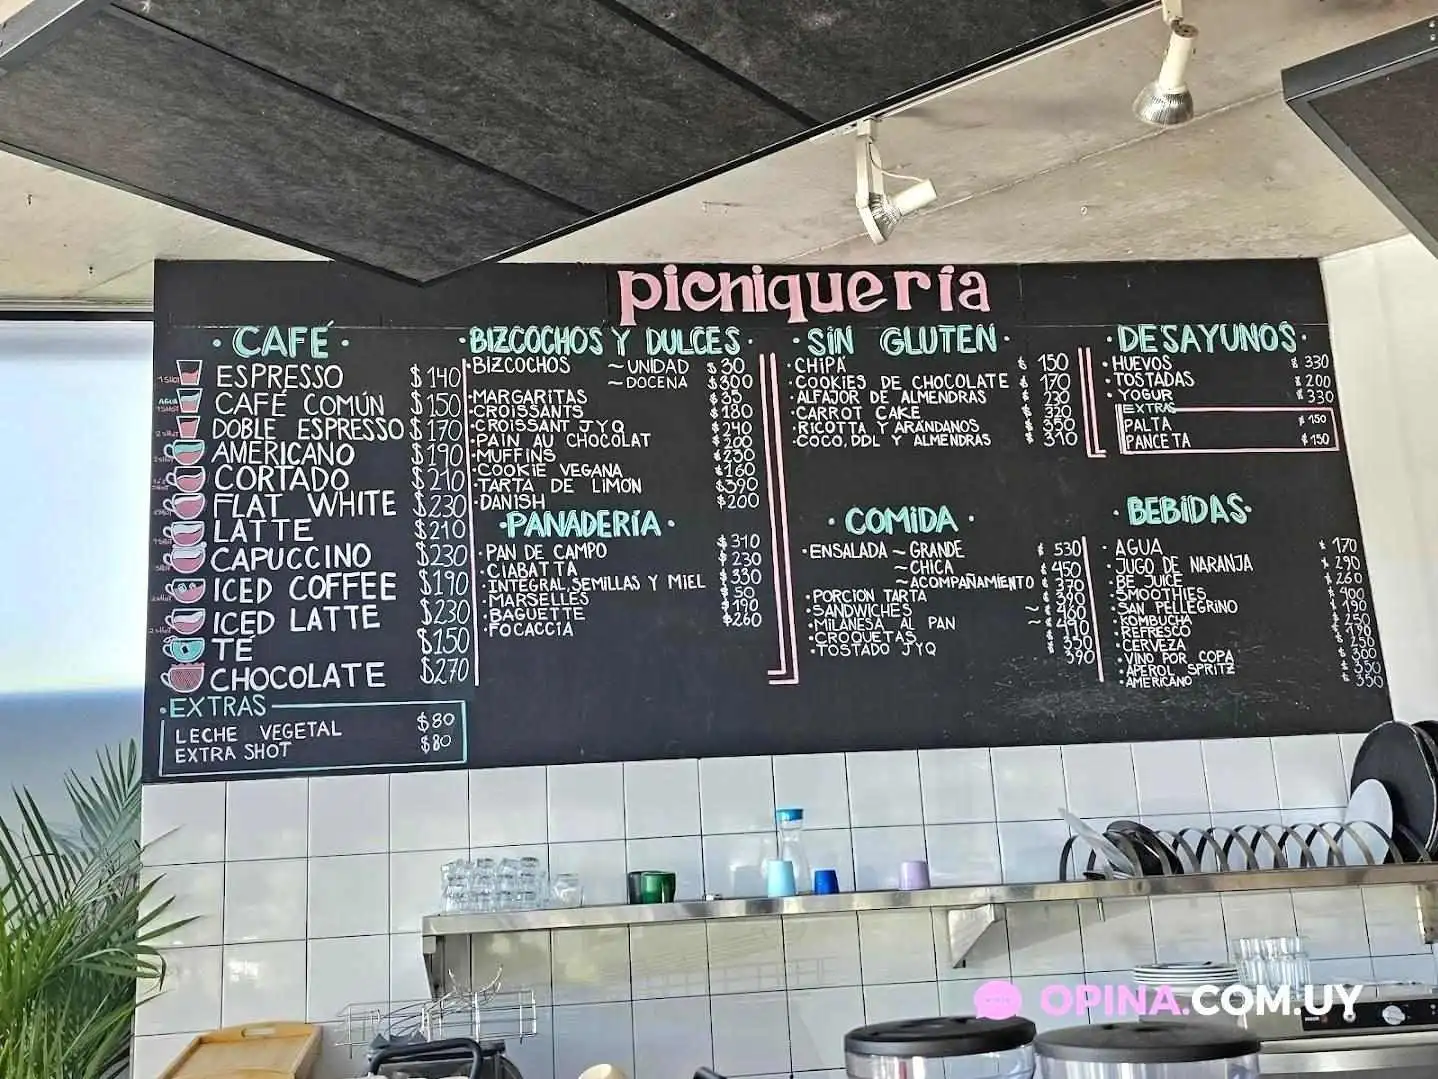 picniquería
· CAFÉ ·
ESPRESSO $140
CAFÉ COMÚN $150
DOBLE ESPRESSO $170
AMERICANO $190
CORTADO $210
FLAT WHITE $230
LATTE $210
CAPUCCINO $230
ICED COFFEE $190
ICED LATTE $230
TÉ $150
CHOCOLATE $270
· EXTRAS
LECHE VEGETAL $80
EXTRA SHOT $80
· BIZCOCHOS Y DULCES ·
· BIZCOCHOS ~ UNIDAD $30
~ DOCENA $300
· MARGARITAS $35
· CROISSANTS $180
· CROISSANT JYQ $240
· PAIN AU CHOCOLAT $200
· MUFFINS $230
· COOKIE VEGANA $160
· TARTA DE LIMON $390
· DANISH $200
· PANADERÍA ·
· PAN DE CAMPO $310
· CIABATTA $230
· INTEGRAL SEMILLAS Y MIEL $330
· MARSELLES $50
· BAGUETTE $190
· FOCACCIA $260
· SIN GLUTEN ·
· CHIPÁ $150
· COOKIES DE CHOCOLATE $170
· ALFAJOR DE ALMENDRAS $230
· CARROT CAKE $320
· RICOTTA Y ARÁNDANOS $350
· COCO, DDL Y ALMENDRAS $310
· COMIDA ·
· ENSALADA ~ GRANDE $530
~ CHICA $450
~ ACOMPAÑAMIENTO
· PORCION TARTA
· SANDWICHES
· MILANESA AL PAN
· CROQUETAS
· TOSTADO JYQ 390
· DESAYUNOS ·
· HUEVOS $330
· TOSTADAS $200
· YOGUR $330
EXTRAS
PALTA $150
PANCETA $150
· BEBIDAS ·
· AGUA $170
· JUGO DE NARANJA $290
· BE JUICE $260
· SMOOTHIES $400
· SAN PELLEGRINO $190
· KOMBUCHA $250
· REFRESCO $190
· CERVEZA $250
· VINO POR COPA $300
· APEROL SPRITZ $350
· AMERICANO $350
OPINA.COM.UY